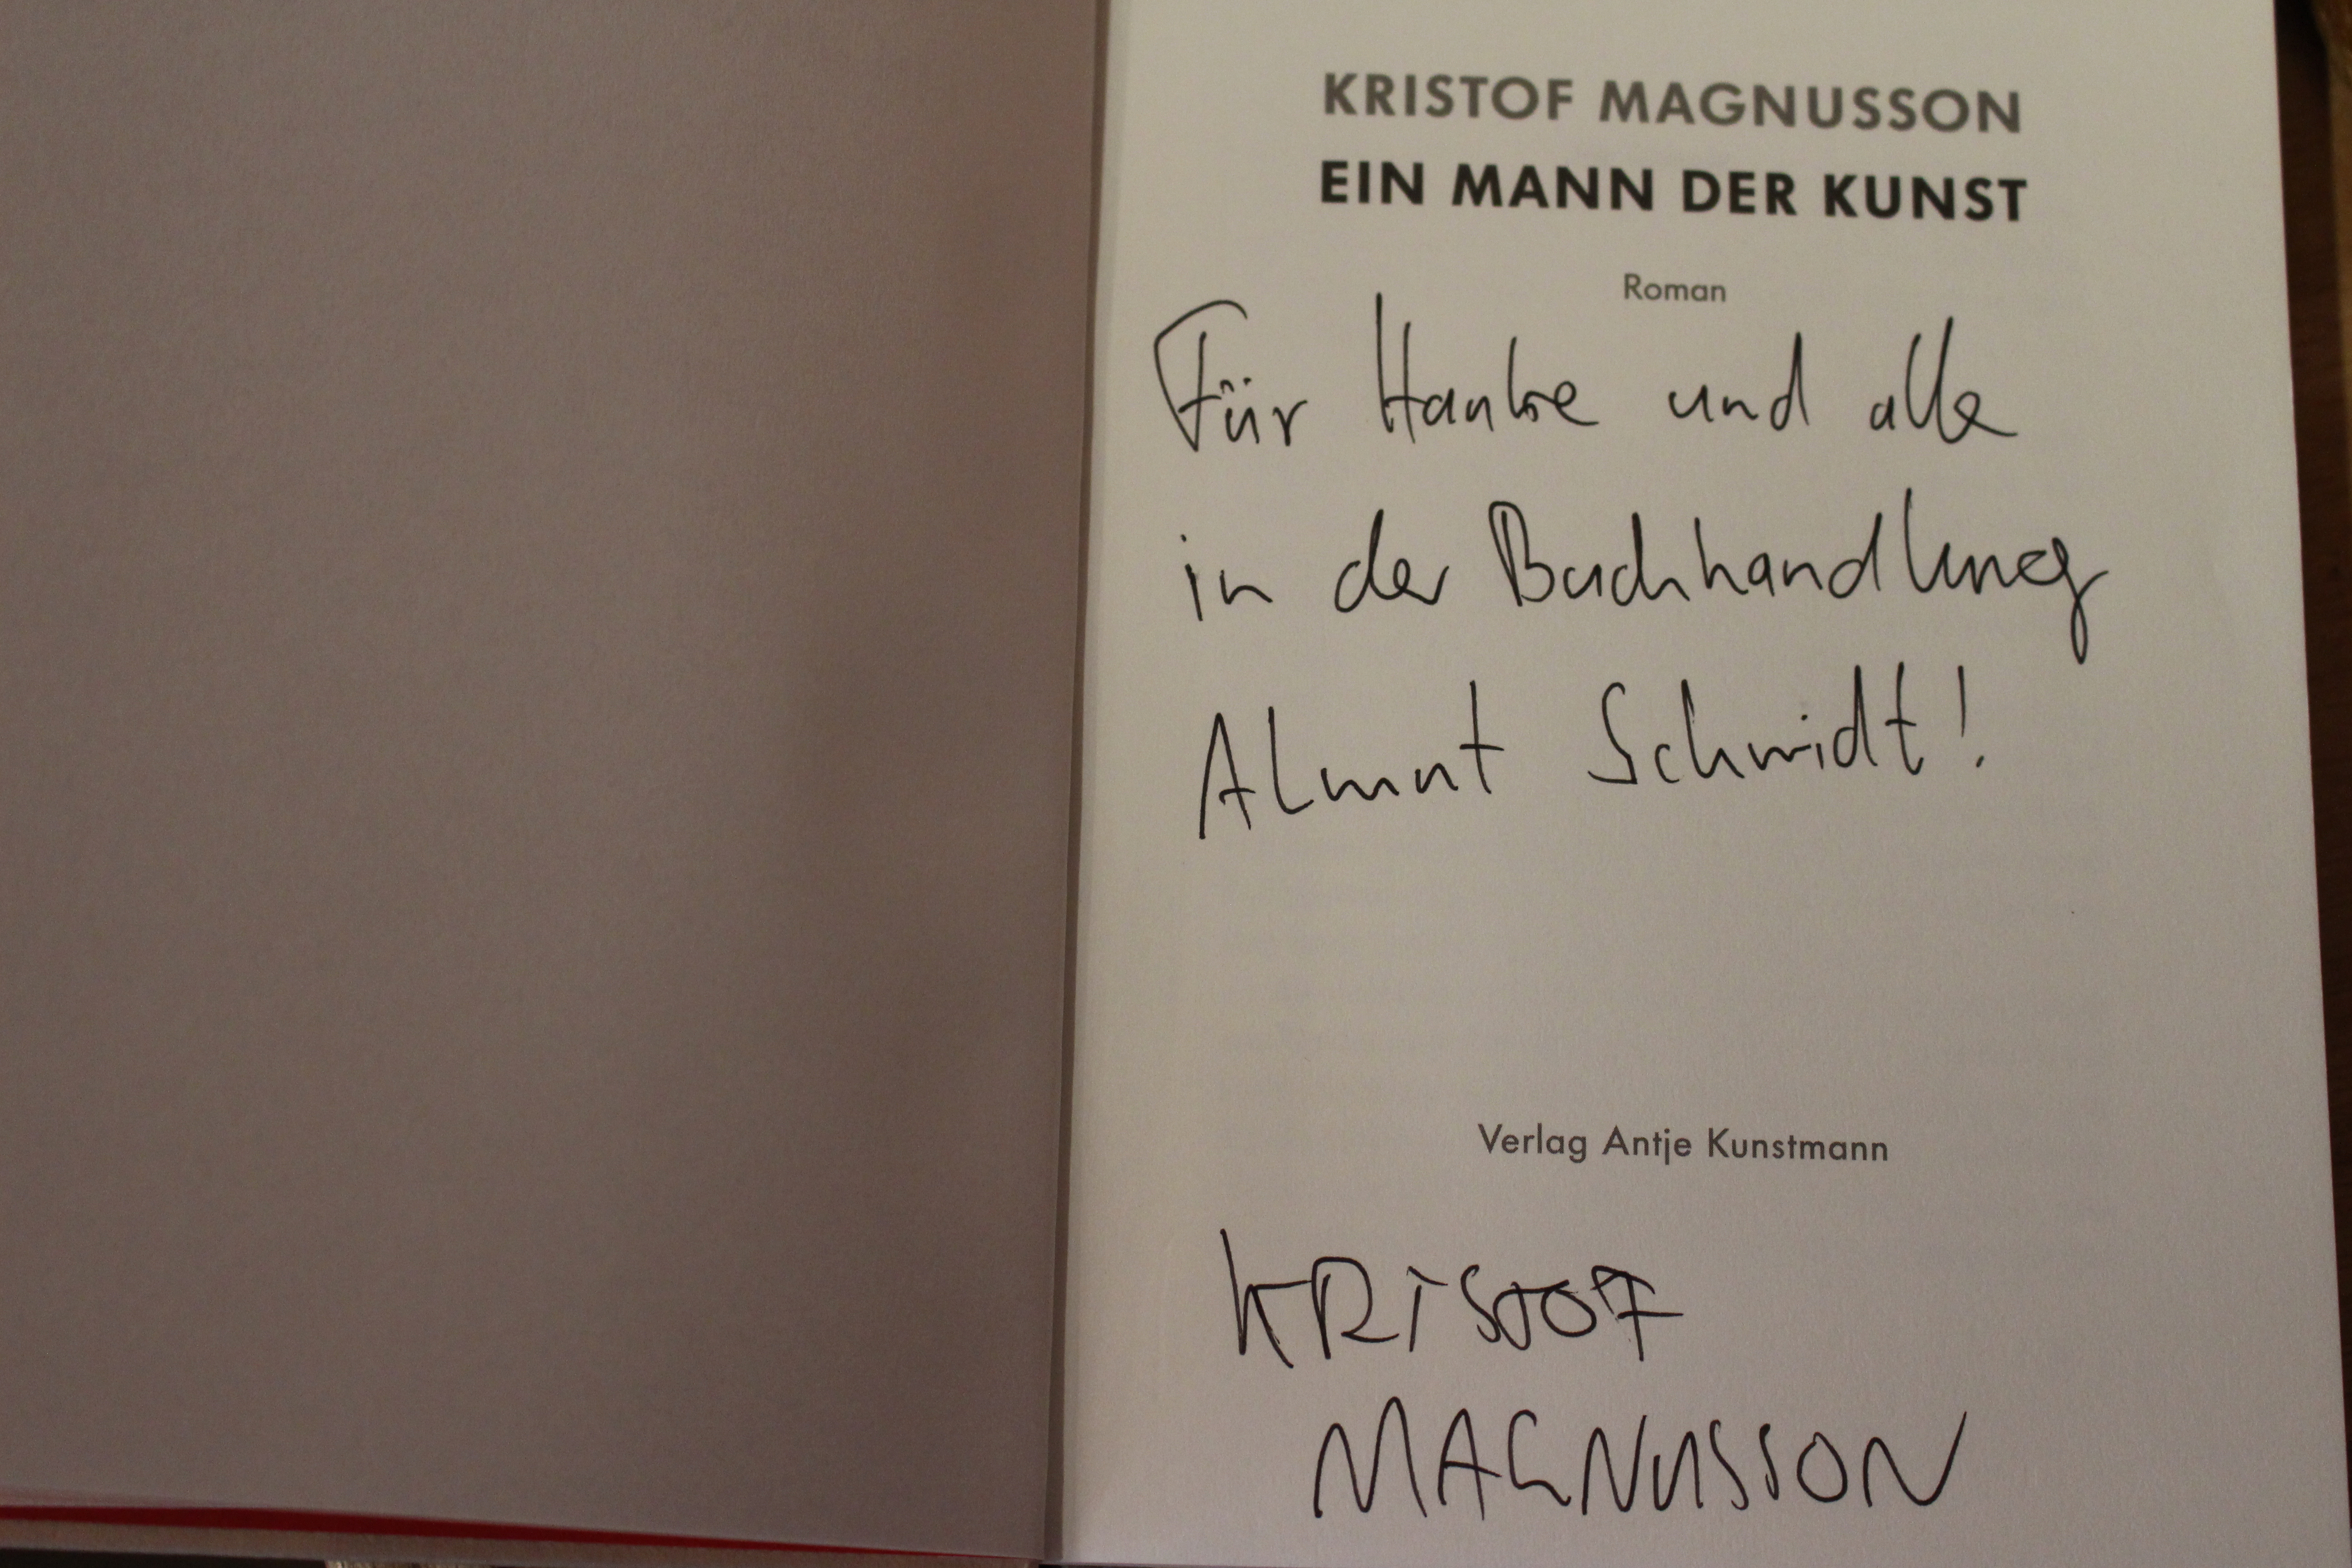 KRISTOF MAGNUSSON
EIN MANN DER KUNST
Roman
Für Hauke und alle
in der Buchhandlung
Almut Schmidt!
Verlag Antje Kunstmann
KRISTOF
MAGNUSSON